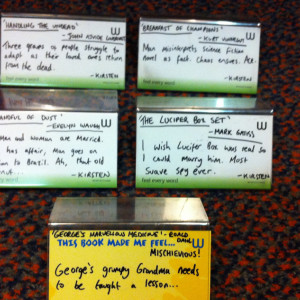 "HANDLING THE UNDEAD"
- JOHN AJVIDE
Three years on people struggle to
adapt as their loved ones return
from the dead.
- KIRSTEN
feel every word
"BREAKFAST OF CHAMPIONS"
- KURT VONNEGUT
Man misinterprets Science Fiction
novel as fact. Chaos ensues. Ace.
- KIRSTEN
feel every word
OF DUST"
- EVELYN WAUGH
Man and woman are Married.
has affair, Man goes on
to Brazil. Ah, that old
- KIRSTEN
feel every word
"THE LUCIFER BOX SET"
- MARK GATISS
I wish Lucifer Box was real so
I could marry him. Most
Suave spy ever.
- KIRSTEN
feel every word
W
"GEORGE'S MARVELLOUS MEDICINE" - ROALD
DAHL
THIS BOOK MADE ME FEEL...
W
MISCHIEVIOUS!
George's grumpy Grandma needs
to be taught a lesson...